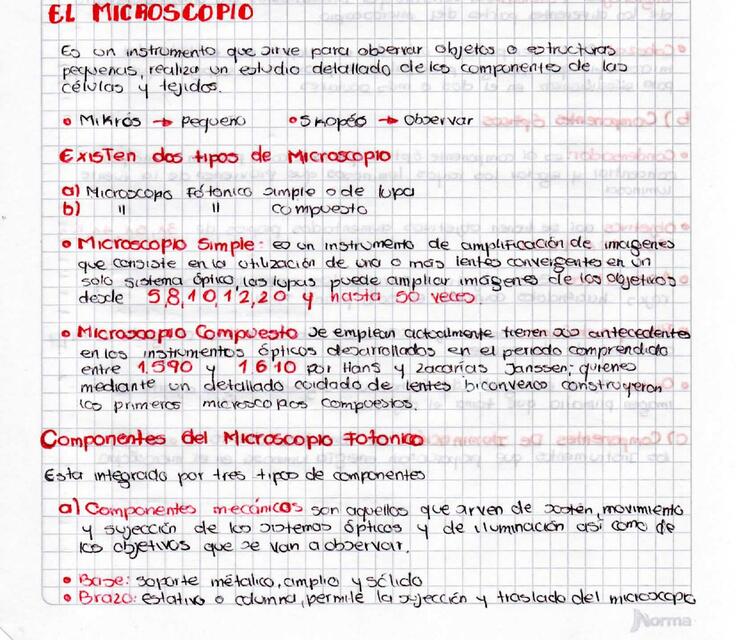 EL MICROSCOPIO
Es un instrumento que sirve para observar objetos o estructuras
pequeñas, realiza un estudio detallado de los componentes de las
células y tejidos.
• Mikrós → pequeño • Skopéo → Observar
Existen dos tipos de Microscopio
a) Microscopo Fótonico simple o de lupa
b) " " compuesto
• Microscopio Simple: es un instrumento de amplificación de imagenes
que consiste en la utilización de una o más lentes convergentes en un
solo sistema óptico, las lupas puede ampliar imágenes de los objetivos
desde 5,8,10,12,20 y hasta 50 veces.
• Microscopio Compuesto se emplean actualmente tienen sus antecedentes
en los instrumentos ópticos desarrollados en el periodo comprendido
entre 1.590 y 1.610 por Hans y Zacarías Janssen; quienes
mediante un detallado cuidado de lentes biconvexo construyeron
los primeros microscopios compuestos.
Componentes del Microscopio Fotonico
Esta integrado por tres tipos de componentes
a) Componentes mecánicos son aquellos que sirven de sostén, movimiento
y sujección de los sistemas ópticos y de iluminación así como de
los objetivos que se van a observar.
• Base: soporte métalico, amplio y sólido
• Brazo: estativo o columna, permite la sujección y traslado del microscopio
Norma